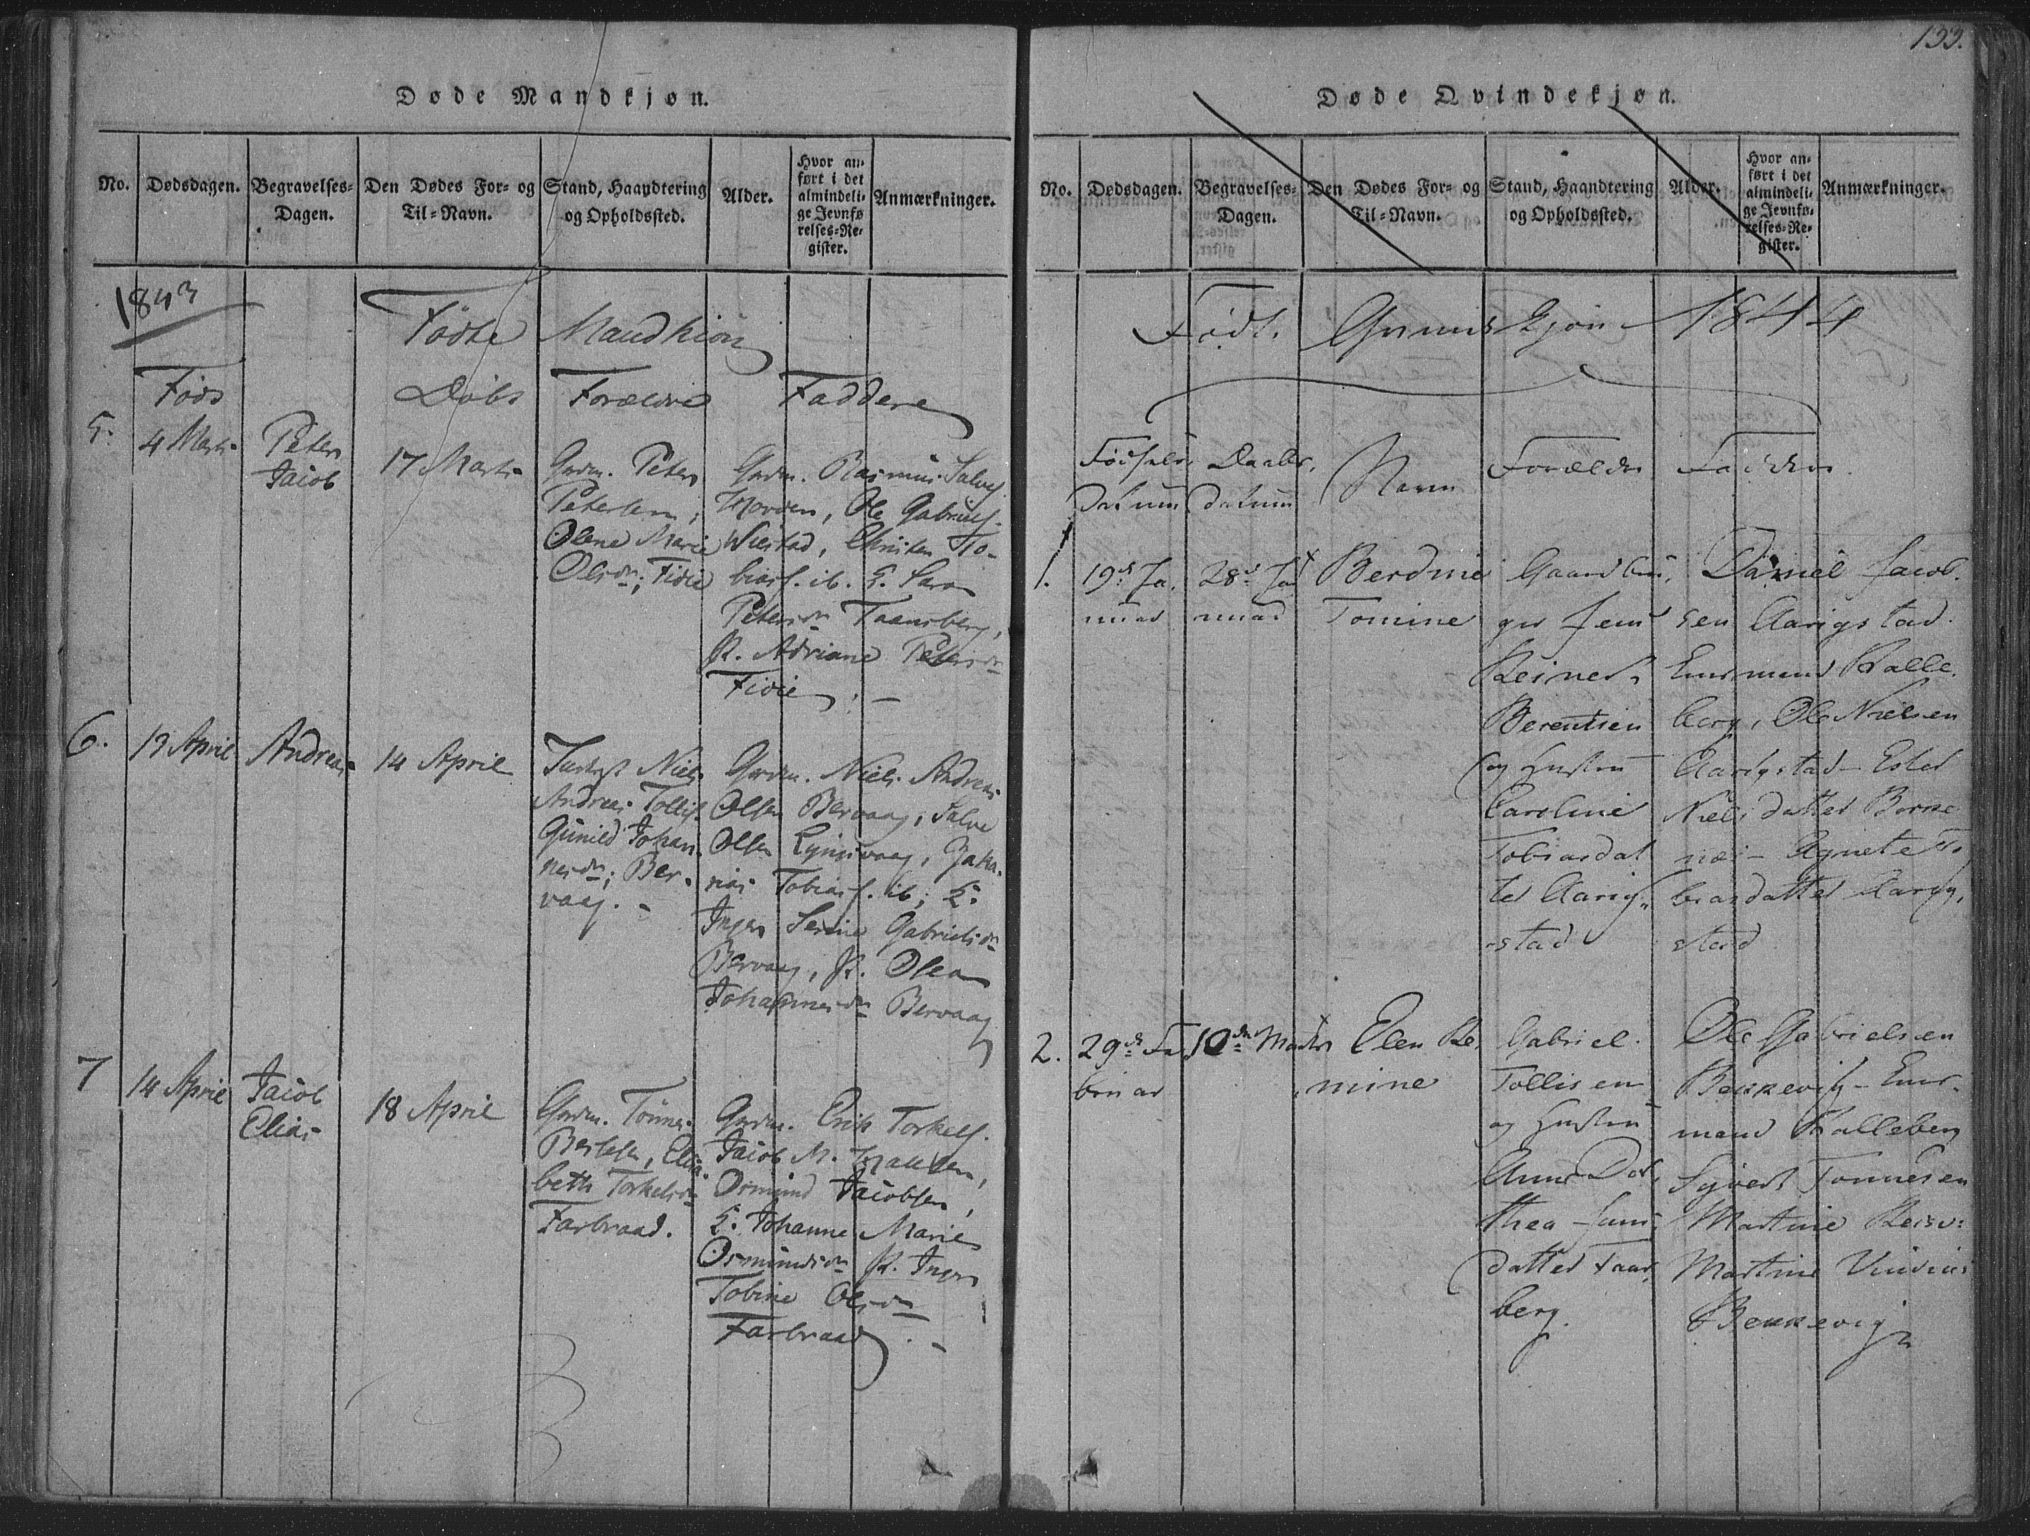 133.
Døde Mandkjøn.
No.
Dødsdagen.
Begravelses-
Dagen.
Den Dødes For- og
Til-Navn.
Stand, Haandtering
og Opholdssted.
Alder.
Hvor an-
ført i det
almindeli-
ge Jevnfø
relses-Re-
gister.
Anmærkninger.
1843
Fødte Mandkiøn
Føds
Døbs
Forældre
Faddere
5.
4 Marts
Peter
Jacob
17 Marts
Gdm. Peter
Petersen,
Olene Marie
Olsdr; Fidie
Gdm. Rasmus Salves.
Hovden, Ole Gabriels.
Wiestad, Christen To-
biass. ib. E. Sara
Petersdr Taansberg,
P. Adriane Petersdr
Fidie
6.
13 April
Andreas
14 April
Niels
Andreas Tollifs.
Gunild Johan-
nesdr; Ber-
vaag.
Gdm. Niels Andreas
Olsen Bervaag, Salve
Olsen Lyngsvaag, Zaka-
rias Tobiass. ib; E.
Inger Serine Gabrielsdr
Bervaag, P. Olea
Johannesdr Bervaag
7
14 April
Jacob
Elias
18 April
Gdm. Tønnes
Bertesen, Elisa-
beth Torkelsdr
Farbraad.
Gdm. Erik Torkels.
Jacob M. Isaksen,
Osmund Jacobsen,
E. Johanne Marie
Osmundsdr P. Inger
Tobine Olsdr
Farbraad.
Døde Qvindekjøn.
No.
Dødsdagen.
Begravelses-
Dagen.
Den Dødes For- og
Til-Navn.
Stand, Haandtering
og Opholdssted.
Alder.
Hvor an-
ført i det
almindeli-
ge Jevnfø-
relses-Re-
gister.
Anmærkninger.
Født Qvindekjøn 1844
Fødsels
datum
Daabs
datum
Navn
Forældre
Faddere
1.
19de Ja
nuar
28de Ja
nuar
Berdine
Tomine
Gaardbru
ger Jens
Reinert
Berentsen
og Hustru
Caroline
Tobiasdat
ter Aarig
stad
Daniel Jacob
sen Aarigstad
Enermund Kalle
berg, Ole Nielsen
Aarigstad Ester
Niels datter Borse
næs - Agnete To
biasdatter Aarig,
stad
2.
29de Fe
bruar
10de Marts
Elen Re
mine
Gabriel
Tollisen
og Hustru
Anne Dor
thea Jens
datter Taars
berg.
Ole Gabrielsen
Bekkevig - Ener
mand Kalleberg
Syvert Tønnesen
Martine
Martine
Bekkevig